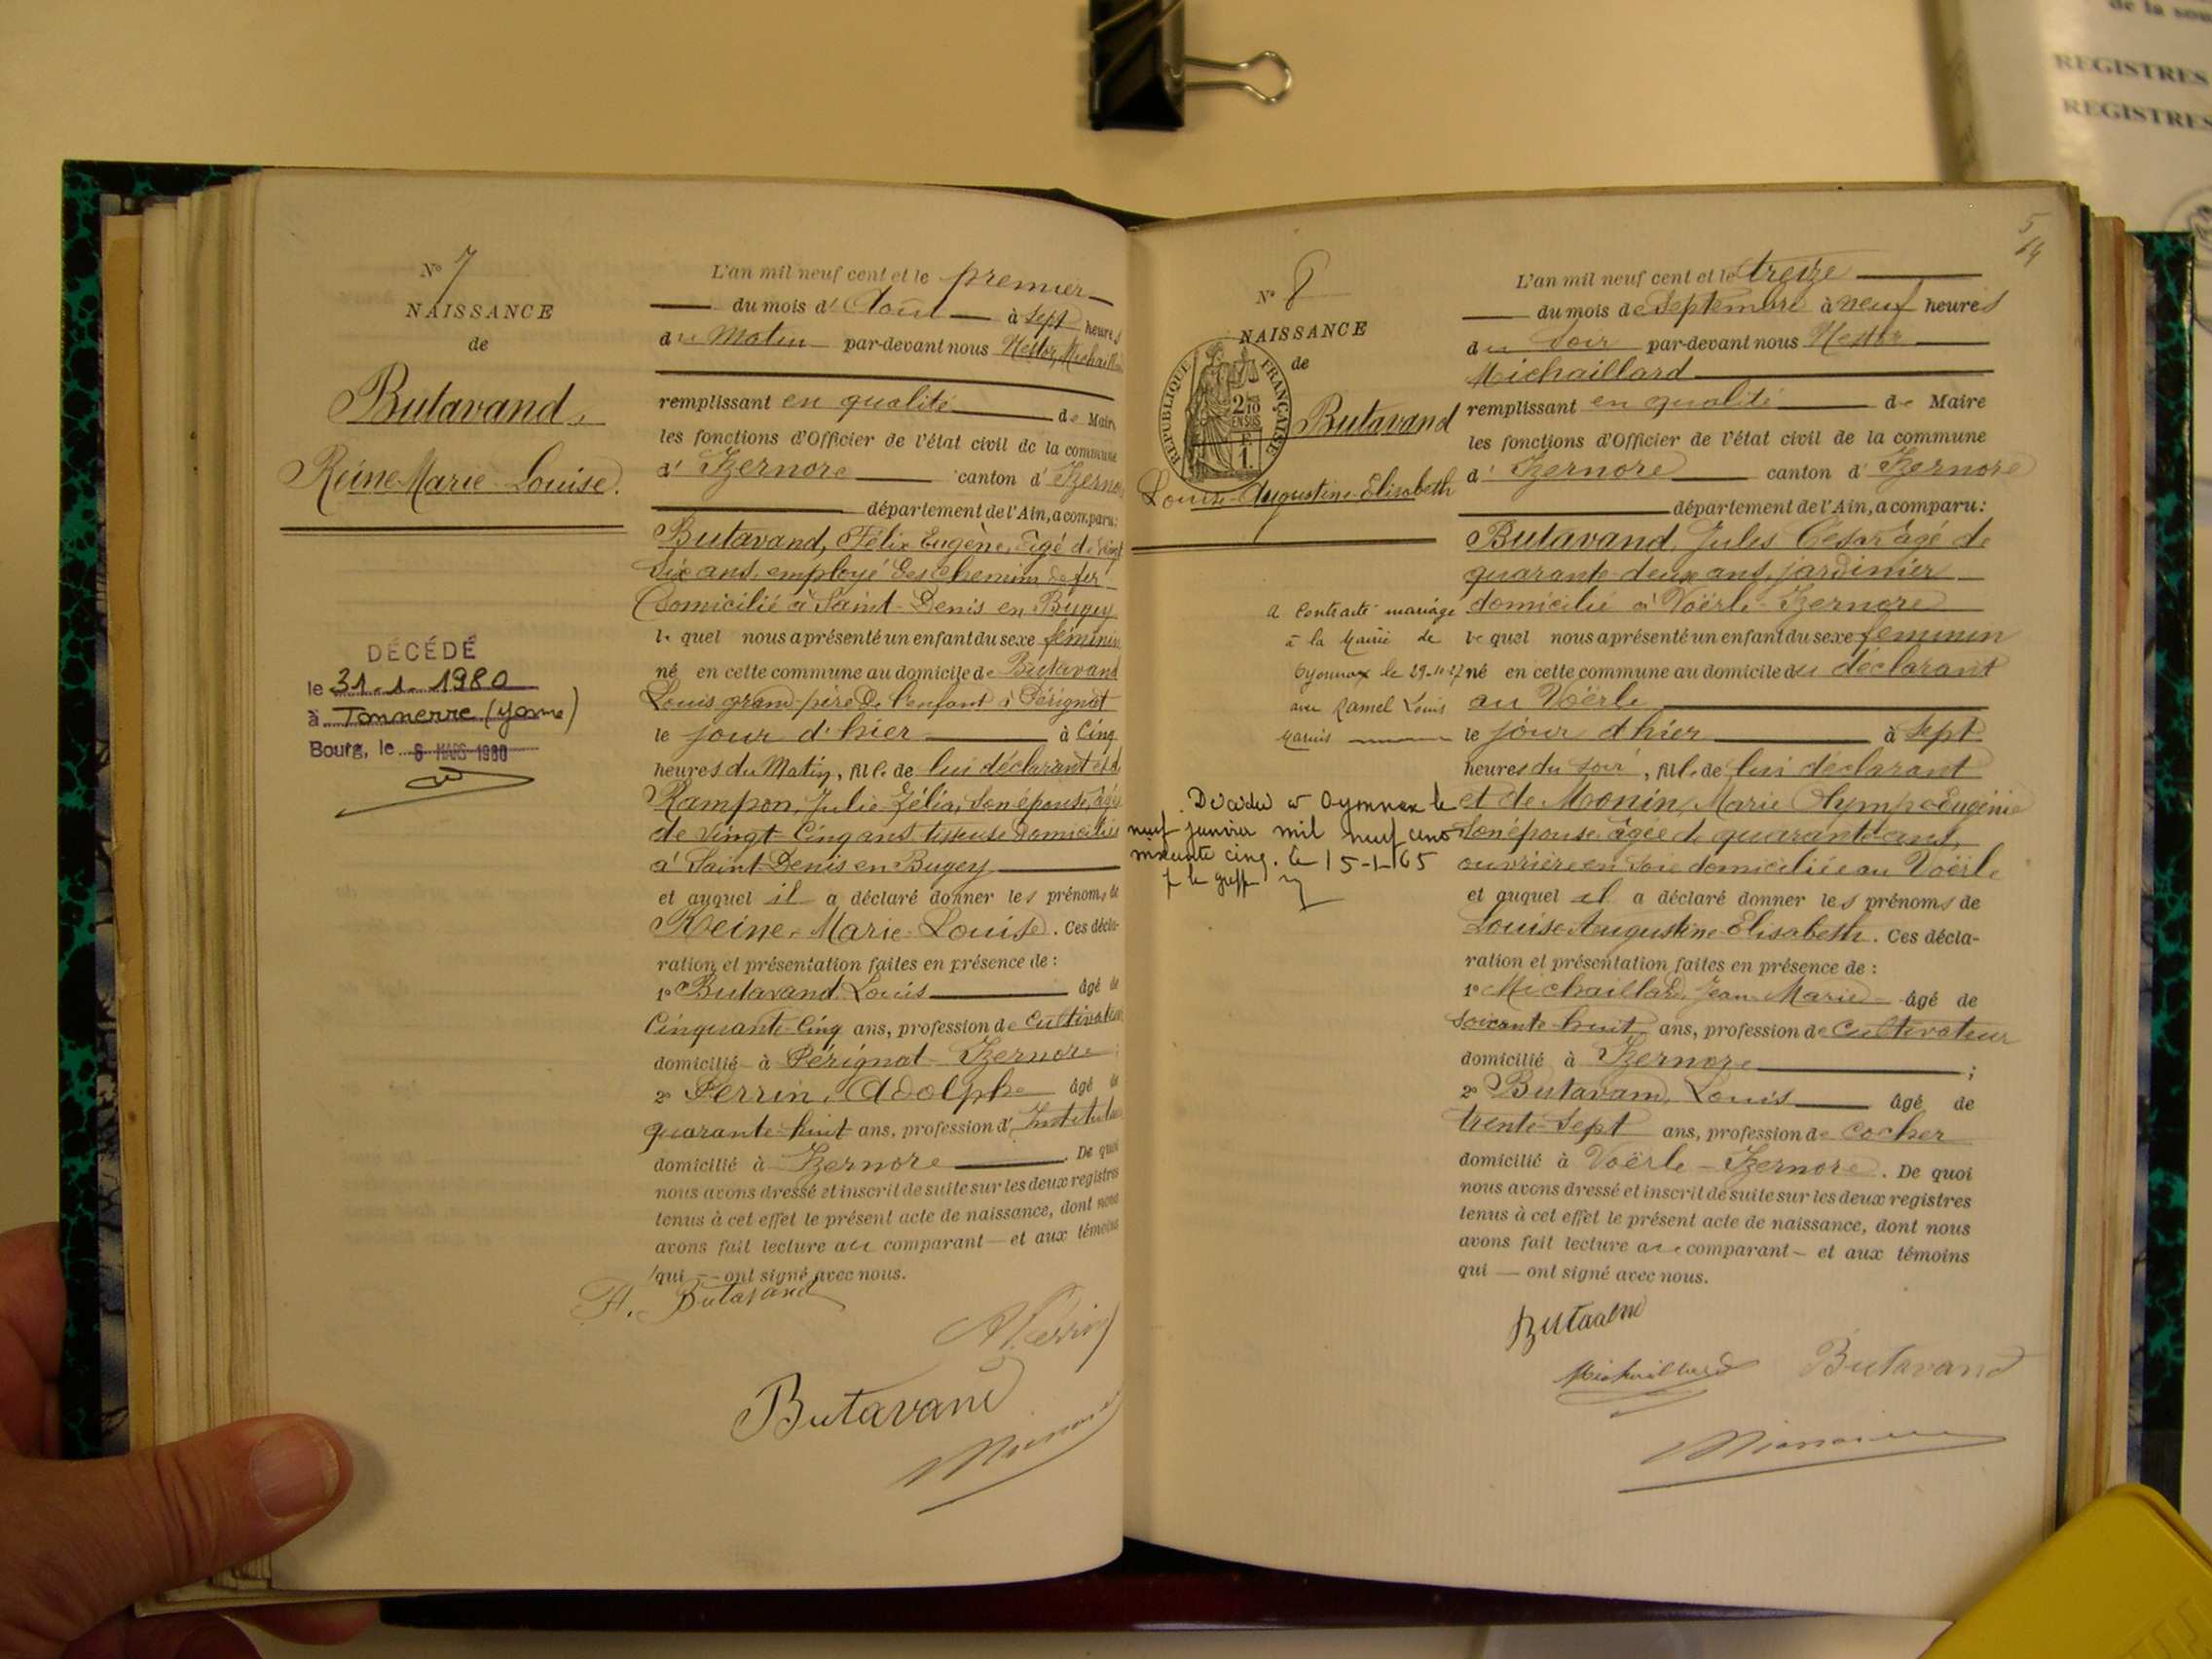 de la sou
REGISTRES
REGISTRES
N° 7
NAISSANCE
de
Butavand,
Reine Marie Louise.
DÉCÉDÉ
le 31.1.1980
à Tonnerre (yonne)
Bourg, le 6 MARS 1980
L'an mil neuf cent et le premier
du mois d'Août à sept heures
du Matin par-devant nous Nestor Michaill
remplissant en qualité de Mair
les fonctions d'Officier de l'état civil de la commune
d'Izernore canton d'Izerno
département de l'Ain, a comparu:
Butavand, Félix Eugène, âgé de vingt
six ans, employé des chemins de fer
domicilié à Saint-Denis en Bugey
lequel nous a présenté un enfant du sexe féminin
né en cette commune au domicile de Butavand
Louis grand-père de l'enfant à Pérignat
le jour d'hier à Cinq
heures du Matin, fille de lui déclarant et d
Rampon, Julie Zélia, son épouse, âgée
de vingt-Cinq ans tisseuse domiciliée
à Saint-Denis en Bugey
et auquel il a déclaré donner les prénoms de
Reine-Marie-Louise. Ces décla-
ration et présentation faites en présence de :
1° Butavand Louis âgé de
Cinquante-Cinq ans, profession de Cultivateur
domicilié à Pérignat Izernore ;
2° Perrin, Adolphe âgé de
quarante-huit ans, profession d'Institute
domicilié à Izernore. De quoi
nous avons dressé et inscrit de suite sur les deux registres
tenus à cet effet le présent acte de naissance, dont nous
avons fait lecture au comparant et aux témoins
qui ont signé avec nous.
F. Butavand
A. Perrin
Butavand
5
14
N° 8
NAISSANCE
de
RÉPUBLIQUE FRANÇAISE
2/10
EN SUS
F.
1.
Butavand
Louise-Augustine-Elisabeth
a contracté mariage
à la Mairie de
Oyonnax le 29-10-27
avec Ramel Louis
Marius
Décédée à Oyonnax le
neuf janvier mil neuf cent
soixante cinq. le 15-1-65
p le greff
L'an mil neuf cent et le treize
du mois de Septembre à neuf heures
du soir par-devant nous Nestor
Michaillard
remplissant en qualité de Maire
les fonctions d'Officier de l'état civil de la commune
d'Izernore canton d'Izernore
département de l'Ain, a comparu:
Butavand, Jules César âgé de
quarante-deux ans, jardinier
domicilié à Voërle-Izernore
lequel nous a présenté un enfant du sexe féminin
né en cette commune au domicile du déclarant
au Voërle
le jour d'hier à Sept
heures du soir, fille de lui déclarant
et de Monin, Marie Olympe Eugénie
son épouse âgée de quarante ans,
ouvrière en soie domiciliée au Voërle
et auquel il a déclaré donner les prénoms de
Louise Augustine Elisabeth. Ces décla-
ration et présentation faites en présence de :
1° Michaillard, Jean-Marie âgé de
soixante-huit ans, profession de Cultivateur
domicilié à Izernore ;
2° Butavand, Louis âgé de
trente-sept ans, profession de cocher
domicilié à Voërle-Izernore. De quoi
nous avons dressé et inscrit de suite sur les deux registres
tenus à cet effet le présent acte de naissance, dont nous
avons fait lecture au comparant et aux témoins
qui ont signé avec nous.
Michaillard
Butavand